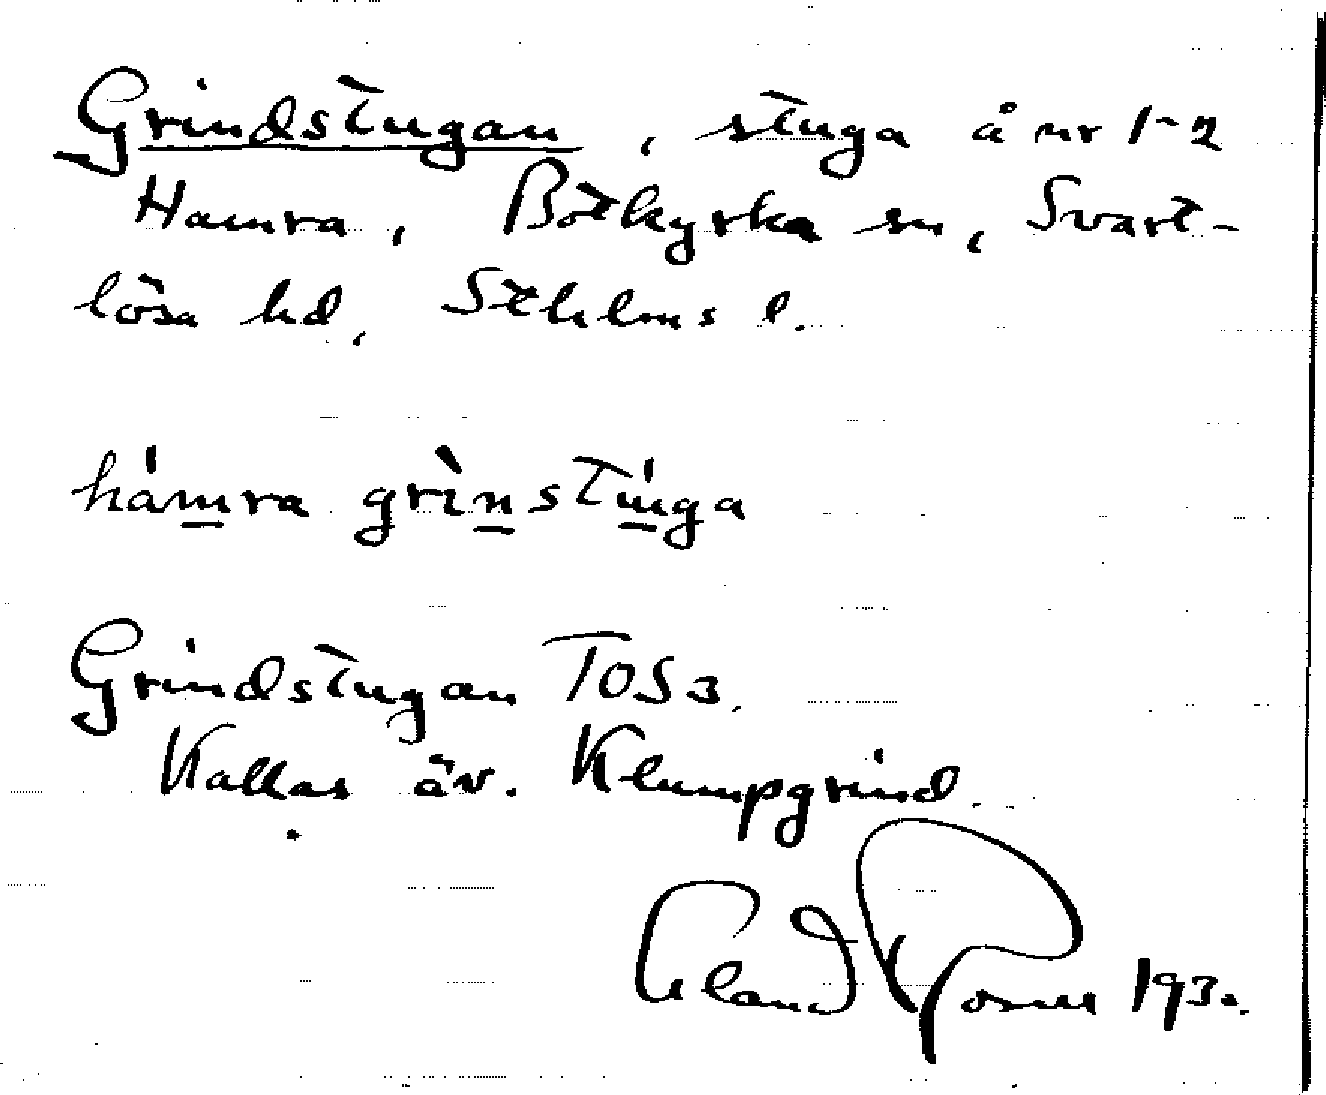 Grindstugan, stuga å nr 1-2
Hamra, Botkyrka sn, Svart-
lösa hd, Sthlms l.
hámra grìnstúga
Grindstugan TOS 3.
Kallas äv. Klumpgrind.
Erland Rosell 1930.